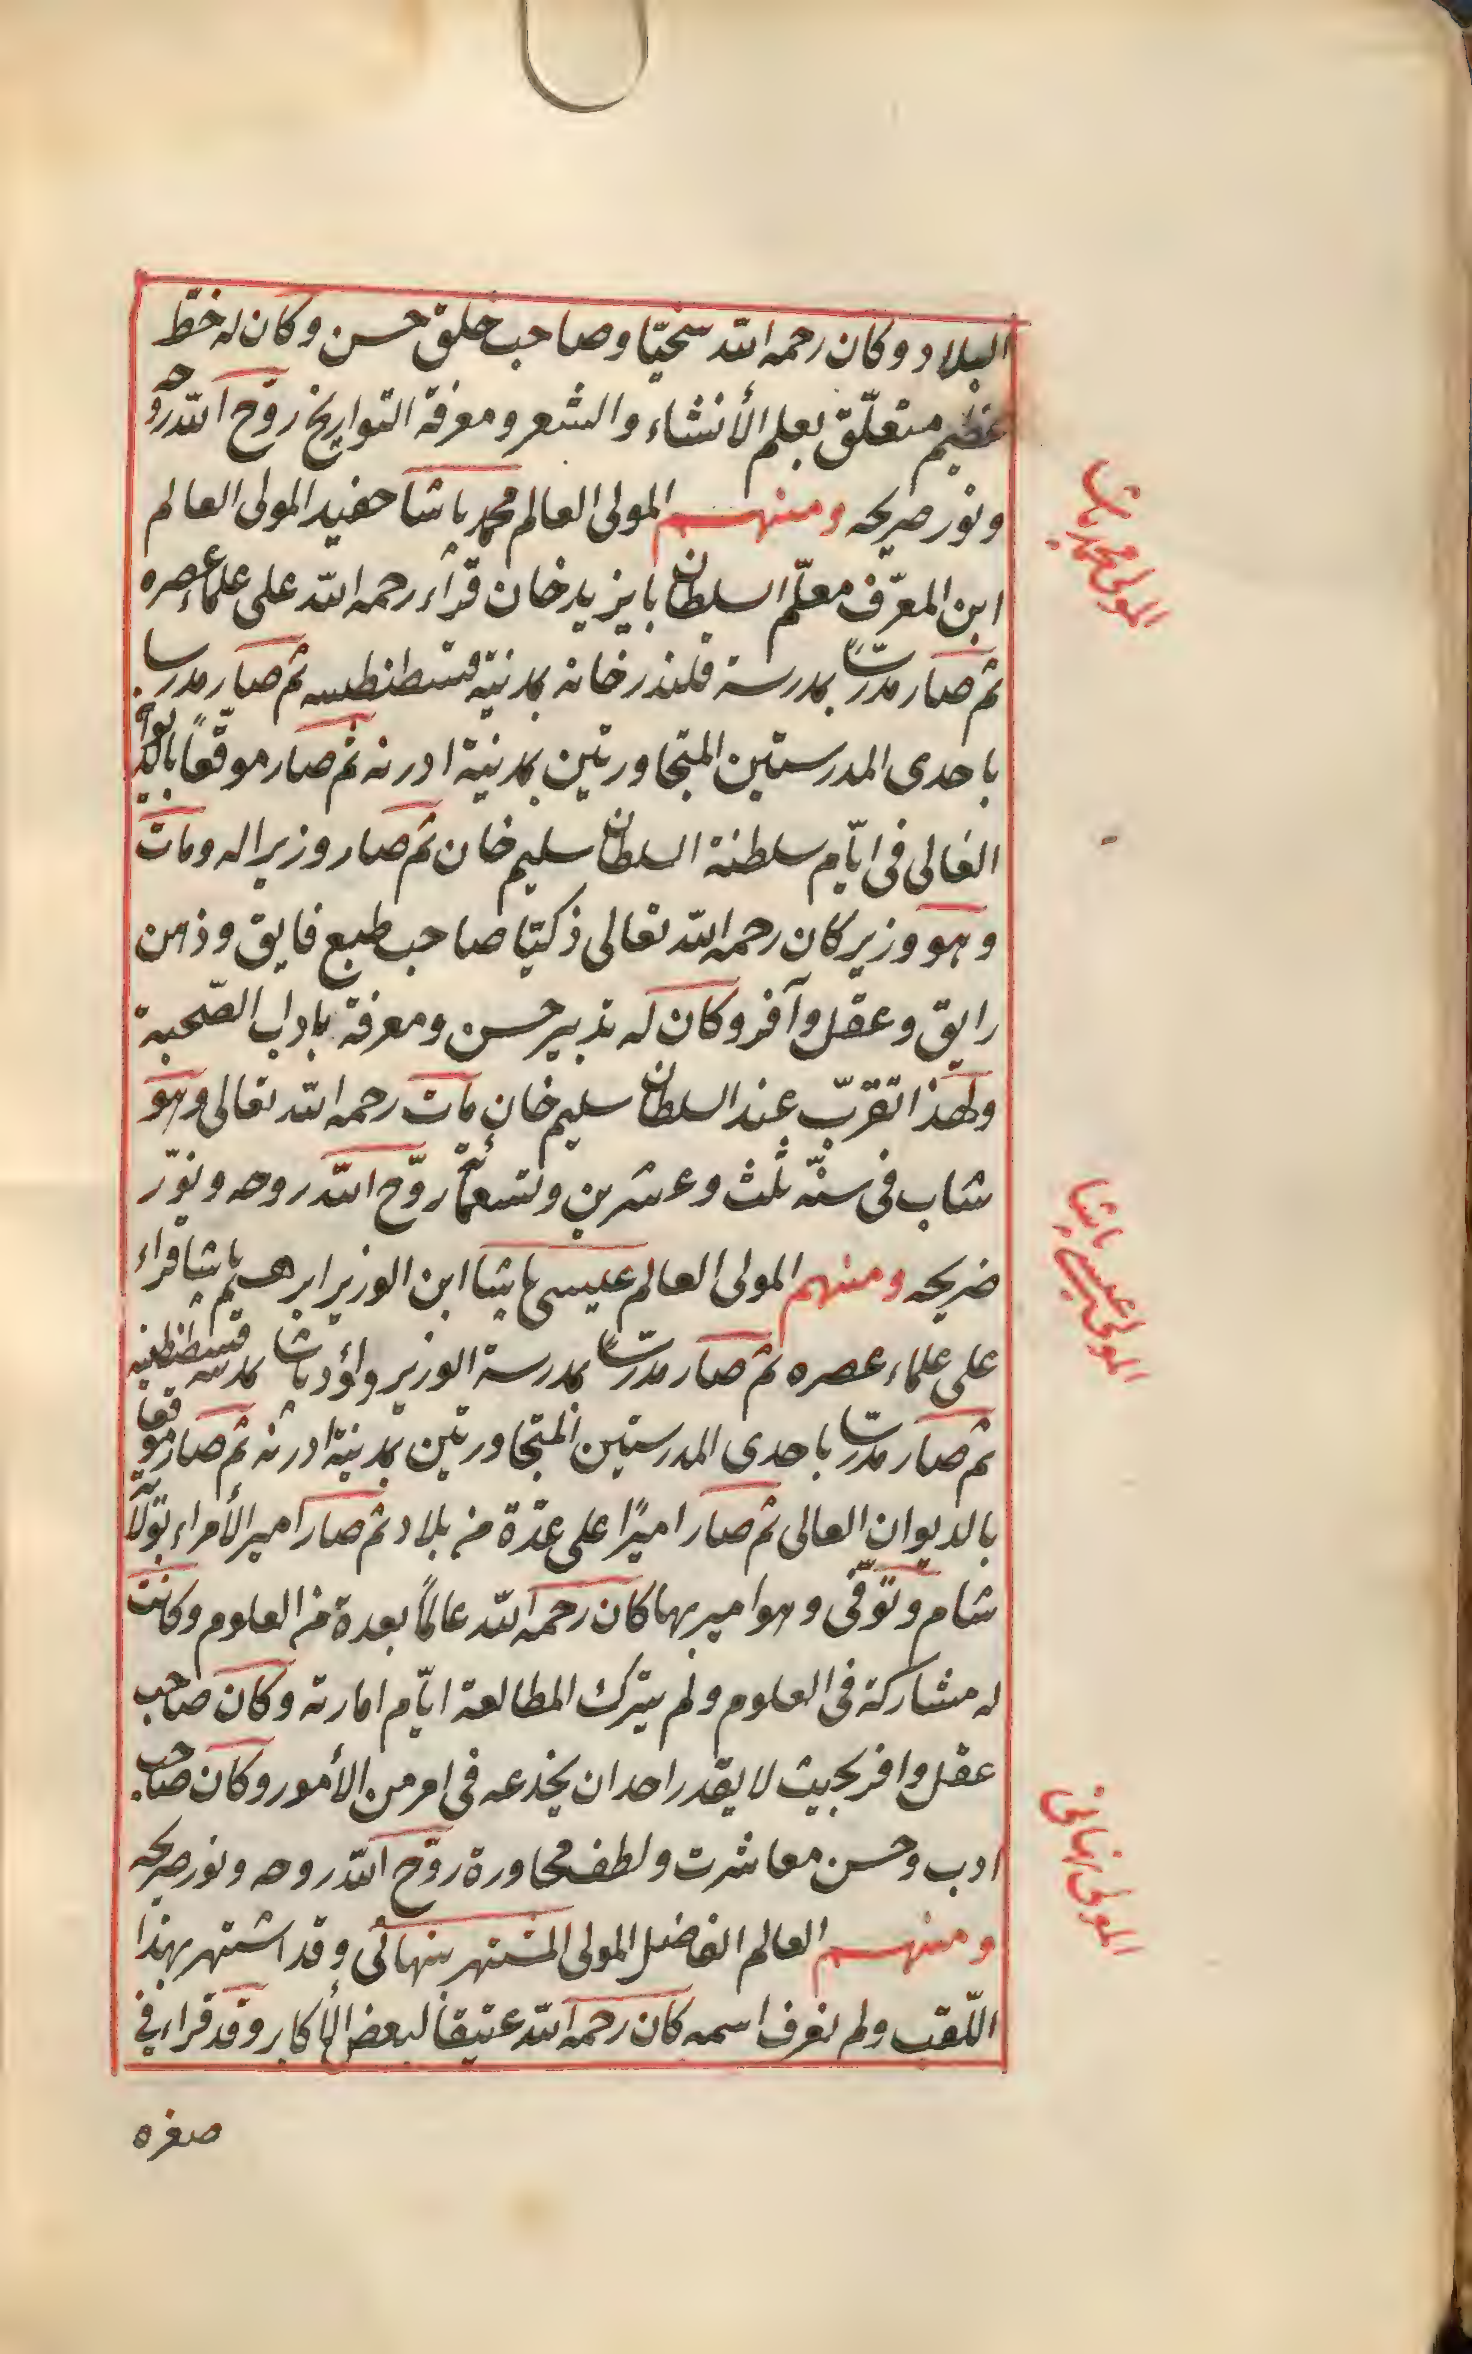 البلاد وكان رحمه الله سخيّا وصاحب خلق حسن وكان له خطّ
عظيم متعلّق بعلم الأنشاء والشعر ومعرفة التواريخ روّح الله روحه
ونور ضريحه ومنهم المولى العالم محمد باشا حفيد المولى العالم
ابن المعرّف معلّم السلطان بايزيد خان قرأ رحمه الله على علماء عصره
ثم صار مدرّسًا بمدرسة قلندرخانه بمدينة قسطنطنيه ثم صار مدرسا
باحدى المدرستين المتجاورتين بمدينة ادرنه ثم صار موقّعاً بالديوان
العالى فى ايّام سلطنة السلطان سليم خان ثم صار وزيرا له ومات
وهو وزير كان رحمه الله تعالى ذكيّا صاحب طبع فايق وذهن
رايق وعقل وآفر وكان له تدبير حسن ومعرفة باداب الصّحبة
ولهذا تقرّب عند السلطان سليم خان مات رحمه الله تعالى وهو
شاب فى سنّه ثلث وعشرين وتسعمائة روّح الله روحه ونوّر
ضريحه ومنهم المولى العالم عيسى باشا ابن الوزير ابرهيم باشا قراء
على علماء عصره ثم صار مدرّسًا بمدرسة الوزير داؤد باشا بمدينة قسطنطنيه
ثم صار مدرّسا باحدى المدرستين المتجاورتين بمدينة ادرنه ثم صار موقعا
بالديوان العالى ثم صار اميرًا على عدّة من بلاد ثم صار امير الأمراء بولاية
شام وتوّفى وهو امير بها كان رحمه الله عالمًا بعدة من العلوم وكانت
له مشاركة فى العلوم ولم يترك المطالعة ايّام امارته وكان صاحب
عقل وافر بحيث لا يقدر احد ان يخدعه فى امر من الأمور وكان صاحب
ادب وحسن معاشرت ولطف محاورة روّح الله روحه ونور ضريحه
ومنهم العالم الفاضل المولى المشتهر بنهائى وقد اشتهر بهذا
اللّقب ولم نعرف اسمه كان رحمه الله عتيقاً لبعض الأكابر وقد قراء فى
صغره
المولى محمد باشا
المولى عيسى باشا
المولى نهائى